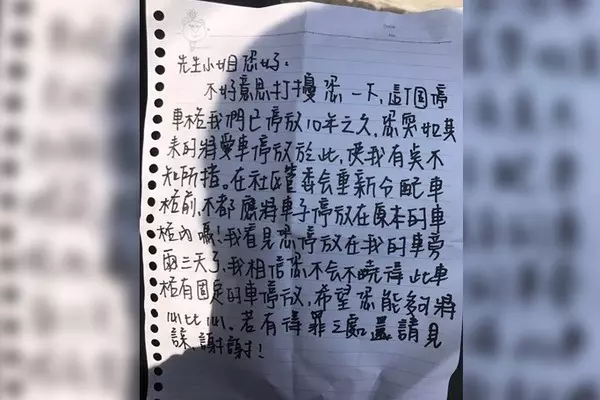 先生小姐您好:
不好意思打擾您一下,這個停
車格我們已停放10年之久,您突如其
來的將愛車停放於此,使我有點不
知所措。在社區管委会重新分配車
格前,不都應將車子停放在原本的車
格內嗎!我看見您停放在我的車旁
兩三天了,我相信您不会不曉得此車
格有固定的車停放,希望您能夠將
心比心。若有得罪之處還請見
諒,謝謝!